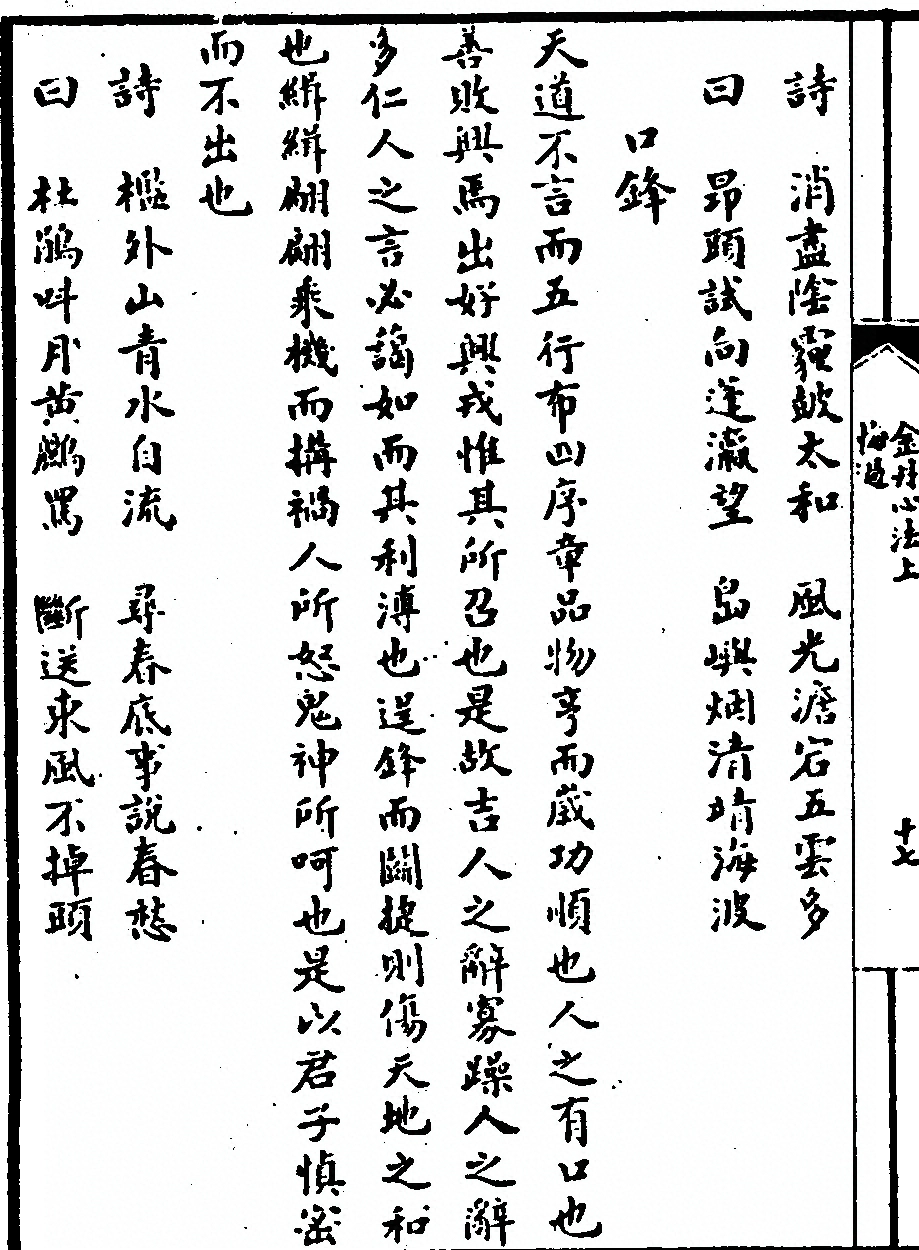 金丹心法上
悔過
十七
詩 消盡陰霾皷太和 風光澹宕五雲多
曰 昂頭試向蓬瀛望 島嶼烟清靖海波
口鋒
天道不言而五行布四序章品物亨而歲功順也人之有口也
善敗興焉出好興戎惟其所召也是故吉人之辭寡躁人之辭
多仁人之言必藹如而其利溥也逞鋒而鬪捷則傷天地之和
也緝緝翩翩乘機而搆禍人所怒鬼神所呵也是以君子慎密
而不出也
詩 檻外山青水自流 尋春底事說春愁
曰 杜鵑呌月黄鸝罵 斷送東風不掉頭